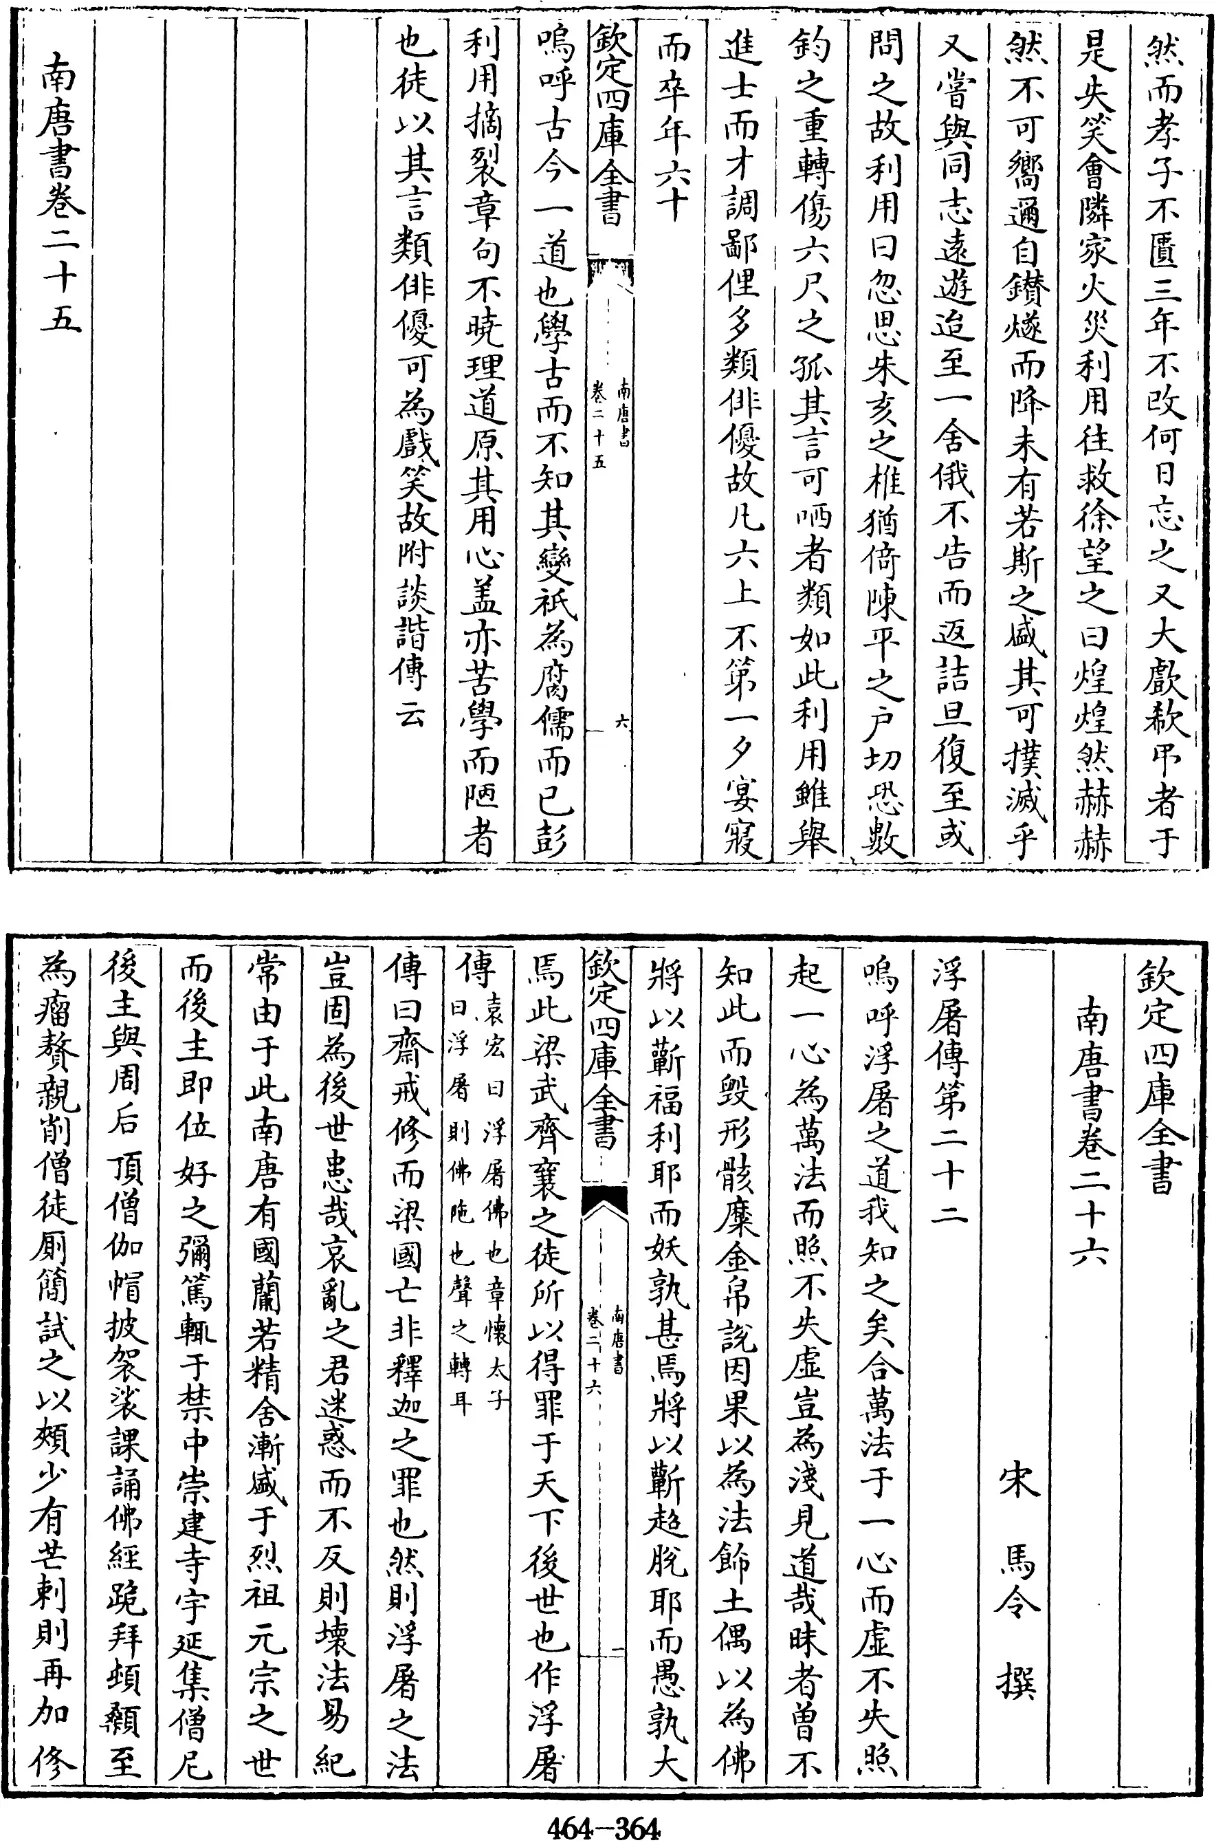 然而孝子不匱三年不改何日忘之又大歔欷弔者于
是失笑會隣家火災利用往救徐望之曰煌煌然赫赫
然不可嚮邇自鑚燧而降未有若斯之盛其可撲滅乎
又嘗與同志遠遊迨至一舍俄不告而返詰旦復至或
問之故利用曰忽思朱亥之椎猶倚陳平之戶切恐數
鈞之重轉傷六尺之孤其言可哂者類如此利用雖舉
進士而才調鄙俚多類俳優故凡六上不第一夕宴寢
而卒年六十
欽定四庫全書
南唐書
卷二十五
六
嗚呼古今一道也學古而不知其變祇為腐儒而已彭
利用摘裂章句不曉理道原其用心盖亦苦學而陋者
也徒以其言類俳優可為戲笑故附談諧傳云
南唐書卷二十五
欽定四庫全書
南唐書卷二十六
宋 馬令 撰
浮屠傳第二十二
嗚呼浮屠之道我知之矣合萬法于一心而虛不失照
起一心為萬法而照不失虛豈為淺見道哉昧者曾不
知此而毀形骸糜金帛說因果以為法飾土偶以為佛
將以蘄福利耶而妖孰甚焉將以蘄超脫耶而愚孰大
欽定四庫全書
南唐書
卷二十六
一
焉此梁武齊襄之徒所以得罪于天下後世也作浮屠
傳袁宏曰浮屠佛也章懷太子
曰浮屠則佛陁也聲之轉耳
傳曰齋戒修而梁國亡非釋迦之罪也然則浮屠之法
豈固為後世患哉哀亂之君迷惑而不反則壞法易紀
常由于此南唐有國蘭若精舍漸盛于烈祖元宗之世
而後主即位好之彌篤輒于禁中崇建寺宇延集僧尼
後主與周后頂僧伽帽披袈裟課誦佛經跪拜頓顙至
為瘤贅親削僧徒厠簡試之以頰少有芒刺則再加修
464-364